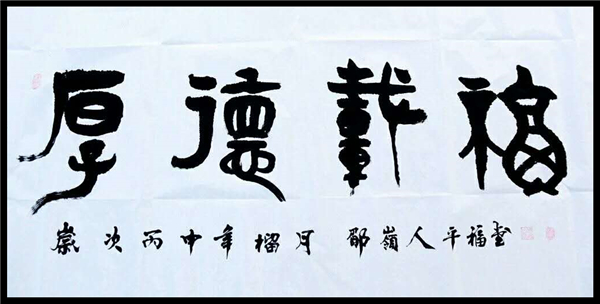 厚德載福
歲次丙申年榴月 邵嶺人平福